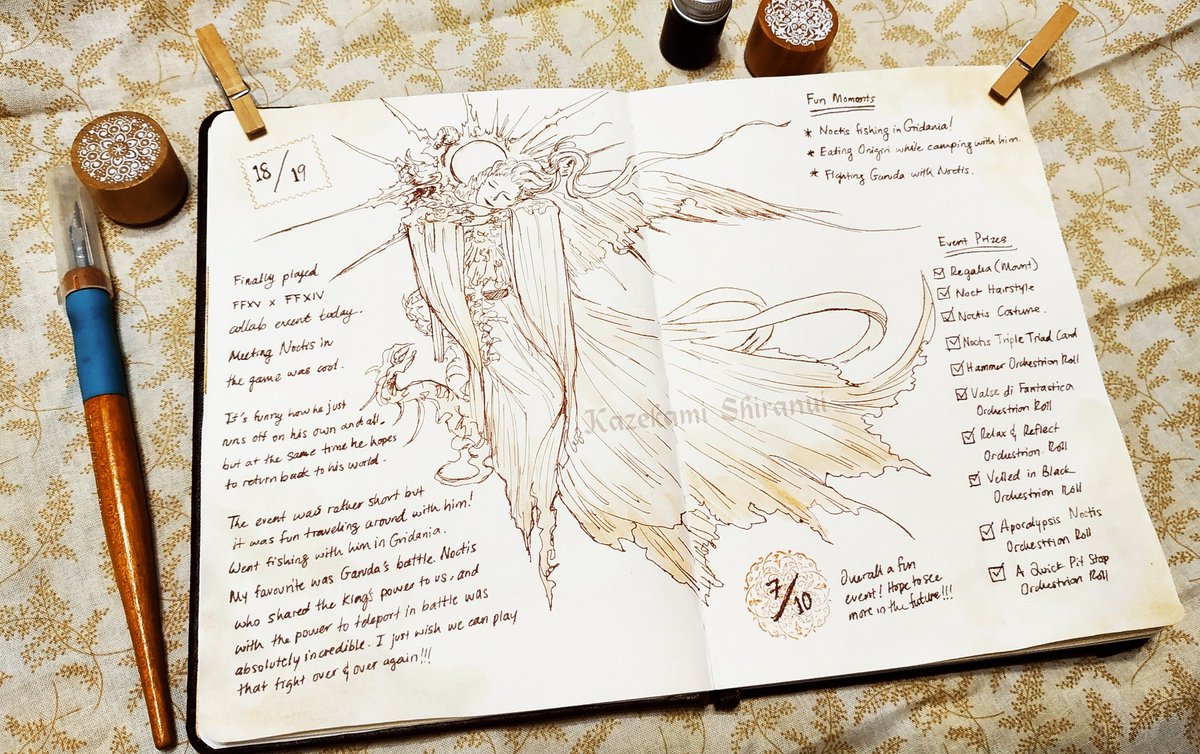 18/19
Finally played
FFXV x FFXIV
collab event today..
Meeting Noctis in
the game was cool.
It's funny how he just
runs off on his own and all..
but at the same time he hopes
to return back to his world.
The event was rather short but
it was fun traveling around with him!
Went fishing with him in Gridania.
My favourite was Garuda's battle. Noctis
who shared the King's power to us, and
with the power to teleport in battle was
absolutely incredible. I just wish we can play
that fight over & over again!!!
Kazekami Shiranui
Fun Moments
* Noctis fishing in Gridania!
* Eating Onigiri while camping with him.
* Fighting Garuda with Noctis.
Event Prizes
☑ Regalia (Mount)
☑ Noct Hairstyle
☑ Noctis Costume.
☑ Noctis Triple Triad Card
☑ Hammer Orchestrion Roll
☑ Valse di Fantastica
Orchestrion Roll
☑ Relax & Reflect
Orchestrion Roll
☑ Veiled in Black
Orchestrion Roll
☑ Apocalypsis Noctis
Orchestrion Roll
☑ A Quick Pit Stop
Orchestrion Roll
7/10
Overall a fun
event! Hope to see
more in the future!!!